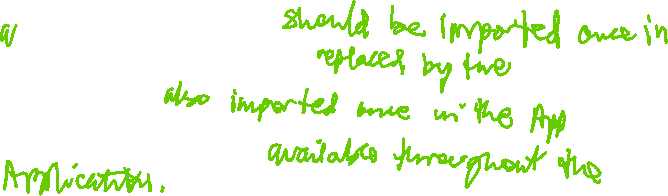 a should be imported once in
replaced by the
also imported once in the App
available throughout the
Application.